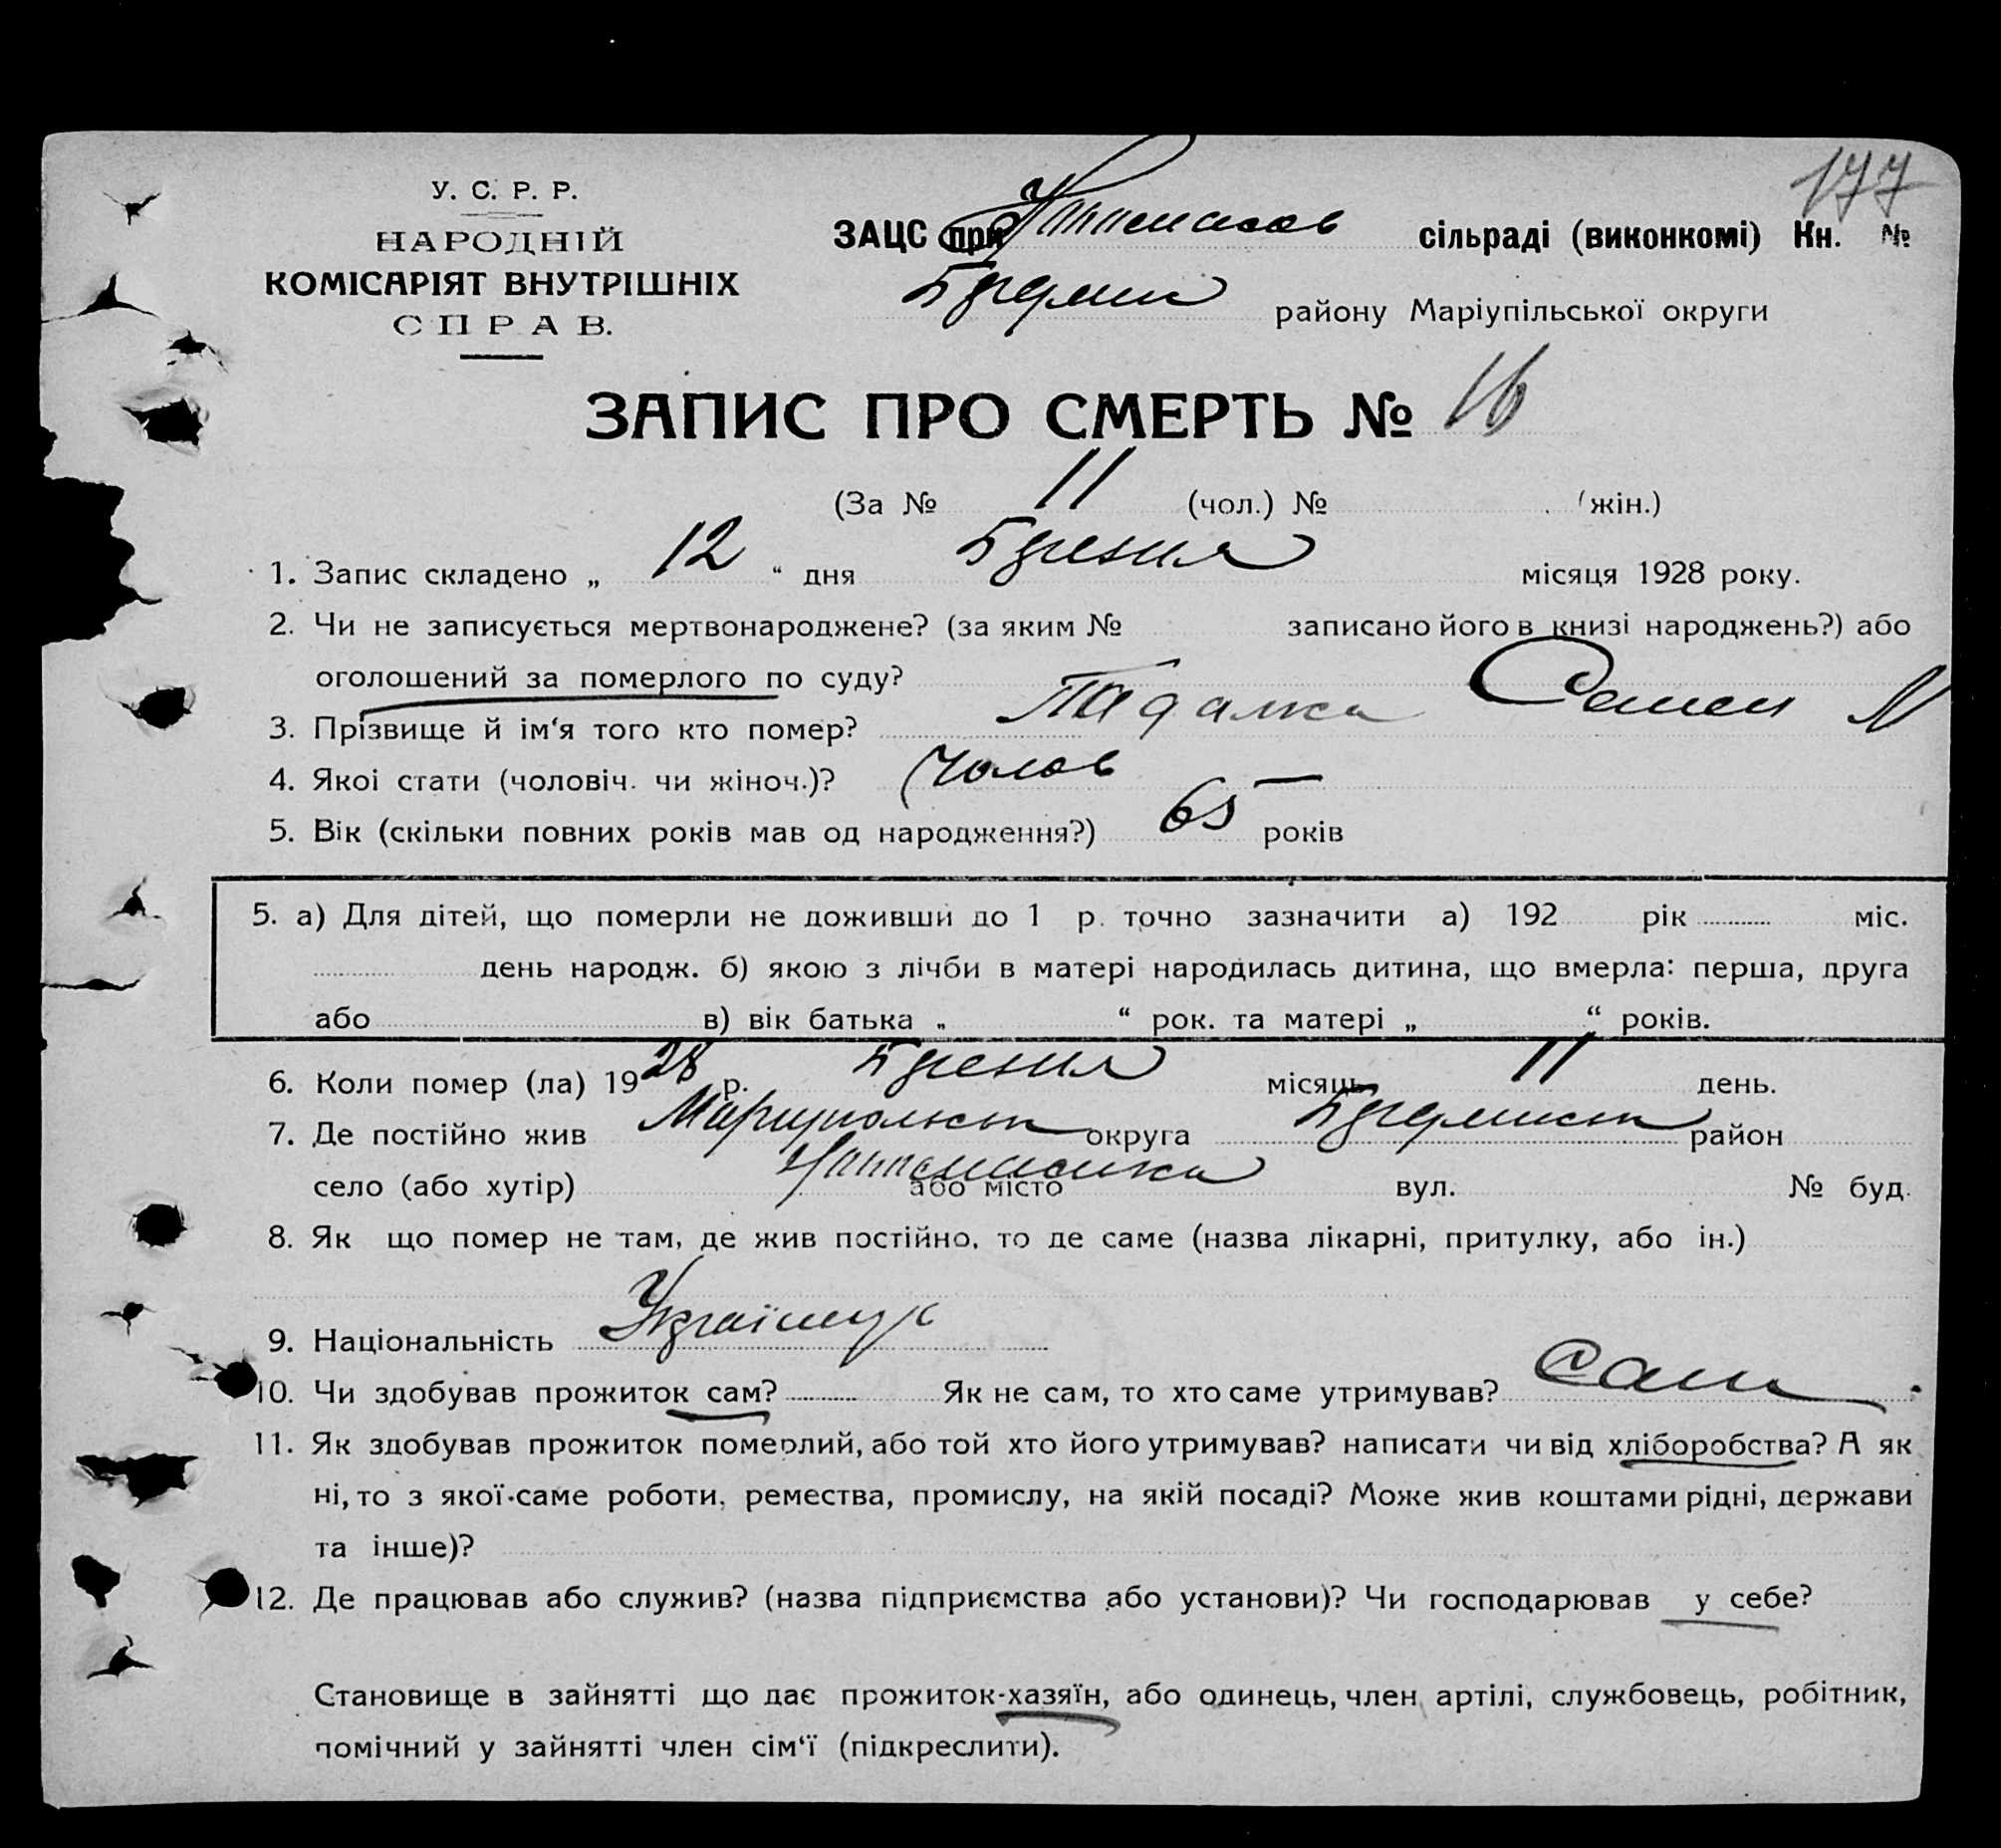 177
У. С. Р. Р.
НАРОДНІЙ
КОМІСАРІЯТ ВНУТРІШНІХ
СПРАВ.
ЗАЦС при сільраді (виконкомі) Кн. №
району Маріупільської округи
ЗАПИС ПРО СМЕРТЬ № 16
(За № 11 (чол.) № (жін.)
1. Запис складено „ 12 “ дня Березня місяця 1928 року.
2. Чи не записується мертвонароджене? (за яким № записано його в книзі народжень?) або
оголошений за померлого по суду?
3. Прізвище й ім‘я того кто помер? Падалка Семен М
4. Якоі стати (чоловіч. чи жіноч.)? Чолов
5. Вік (скільки повних років мав од народження?) 65 років
5. а) Для дітей, що померли не доживши до 1 р. точно зазначити а) 192 рік міс.
день народж. б) якою з лічби в матері народилась дитина, що вмерла: перша, друга
або в) вік батька „ “ рок. та матері „ “ років.
6. Коли помер (ла) 1928 р. Березня місяць 11 день.
7. Де постійно жив округа район
село (або хутір) або місто вул. № буд.
8. Як що помер не там, де жив постійно, то де саме (назва лікарні, притулку, або ін.)
9. Національність Українец
10. Чи здобував прожиток сам? Як не сам, то хто саме утримував? Сам
11. Як здобував прожиток померлий, або той хто його утримував? написати чи від хліборобства? А як
ні, то з якої-саме роботи, ремества, промислу, на якій посаді? Може жив коштами рідні, держави
та інше)?
12. Де працював або служив? (назва підприємства або установи)? Чи господарював у себе?
Становище в зайнятті що дає прожиток-хазяїн, або одинець, член артілі, службовець, робітник,
помічний у зайнятті член сім‘ї (підкреслити).